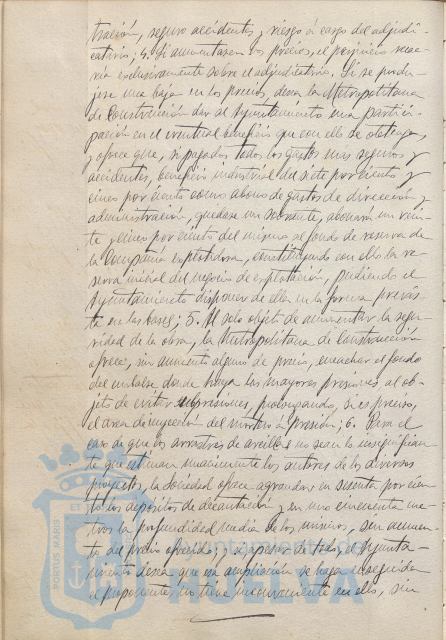 tración, seguro accidentes y riesgo á cargo del adjudi-
catario; 4. Si aumentasen los precios, el perjuicio recae-
ría exclusivamente sobre el adjudicatario. Si se produ-
jese una baja en los precios, desea la Metropolitana
de Construcción dar al Ayuntamiento una partici-
pación en el eventual beneficio que con ello se obtenga,
y ofrece que, si pagados todos los gastos mas seguros y
accidentes, beneficio industrial del siete por ciento y
cinco por ciento como abono de gastos de dirección y
administración, quedase un sobrante, abonará un vein-
te y cinco por ciento del mismo al fondo de reserva de
la Compañía explotadora, constituyendo con ello la re-
serva inicial del negocio de explotación, pudiendo el
Ayuntamiento disponer de ella en la forma previs-
ta en las bases; 5. Al solo objeto de aumentar la segu-
ridad de la obra, la Metropolitana de Construcción
ofrece, sin aumento alguno de precio, ensanchar el fondo
del embalse donde haya las mayores presiones al ob-
jeto de evitar subpresiones, prolongando, si es preciso,
el area de inyección del mortero á presión; 6. Para el
caso de que los arrastres de arcilla no sean lo insignifican-
te que estiman unánimemente los autores de los diversos
proyectos, la Sociedad ofrece agrandar en sesenta por cien-
to los depósitos de decantación y en uno cincuenta me-
tros la profundidad media de los mismos, sin aumen-
to del precio ofrecido; y si á pesar de todo, el Ayunta-
miento desea que esa ampliación se haga enseguida
el proponente no tiene inconveniente en ello, sin
PORTUS MARIS ET
Ayuntamiento de
HUELVA